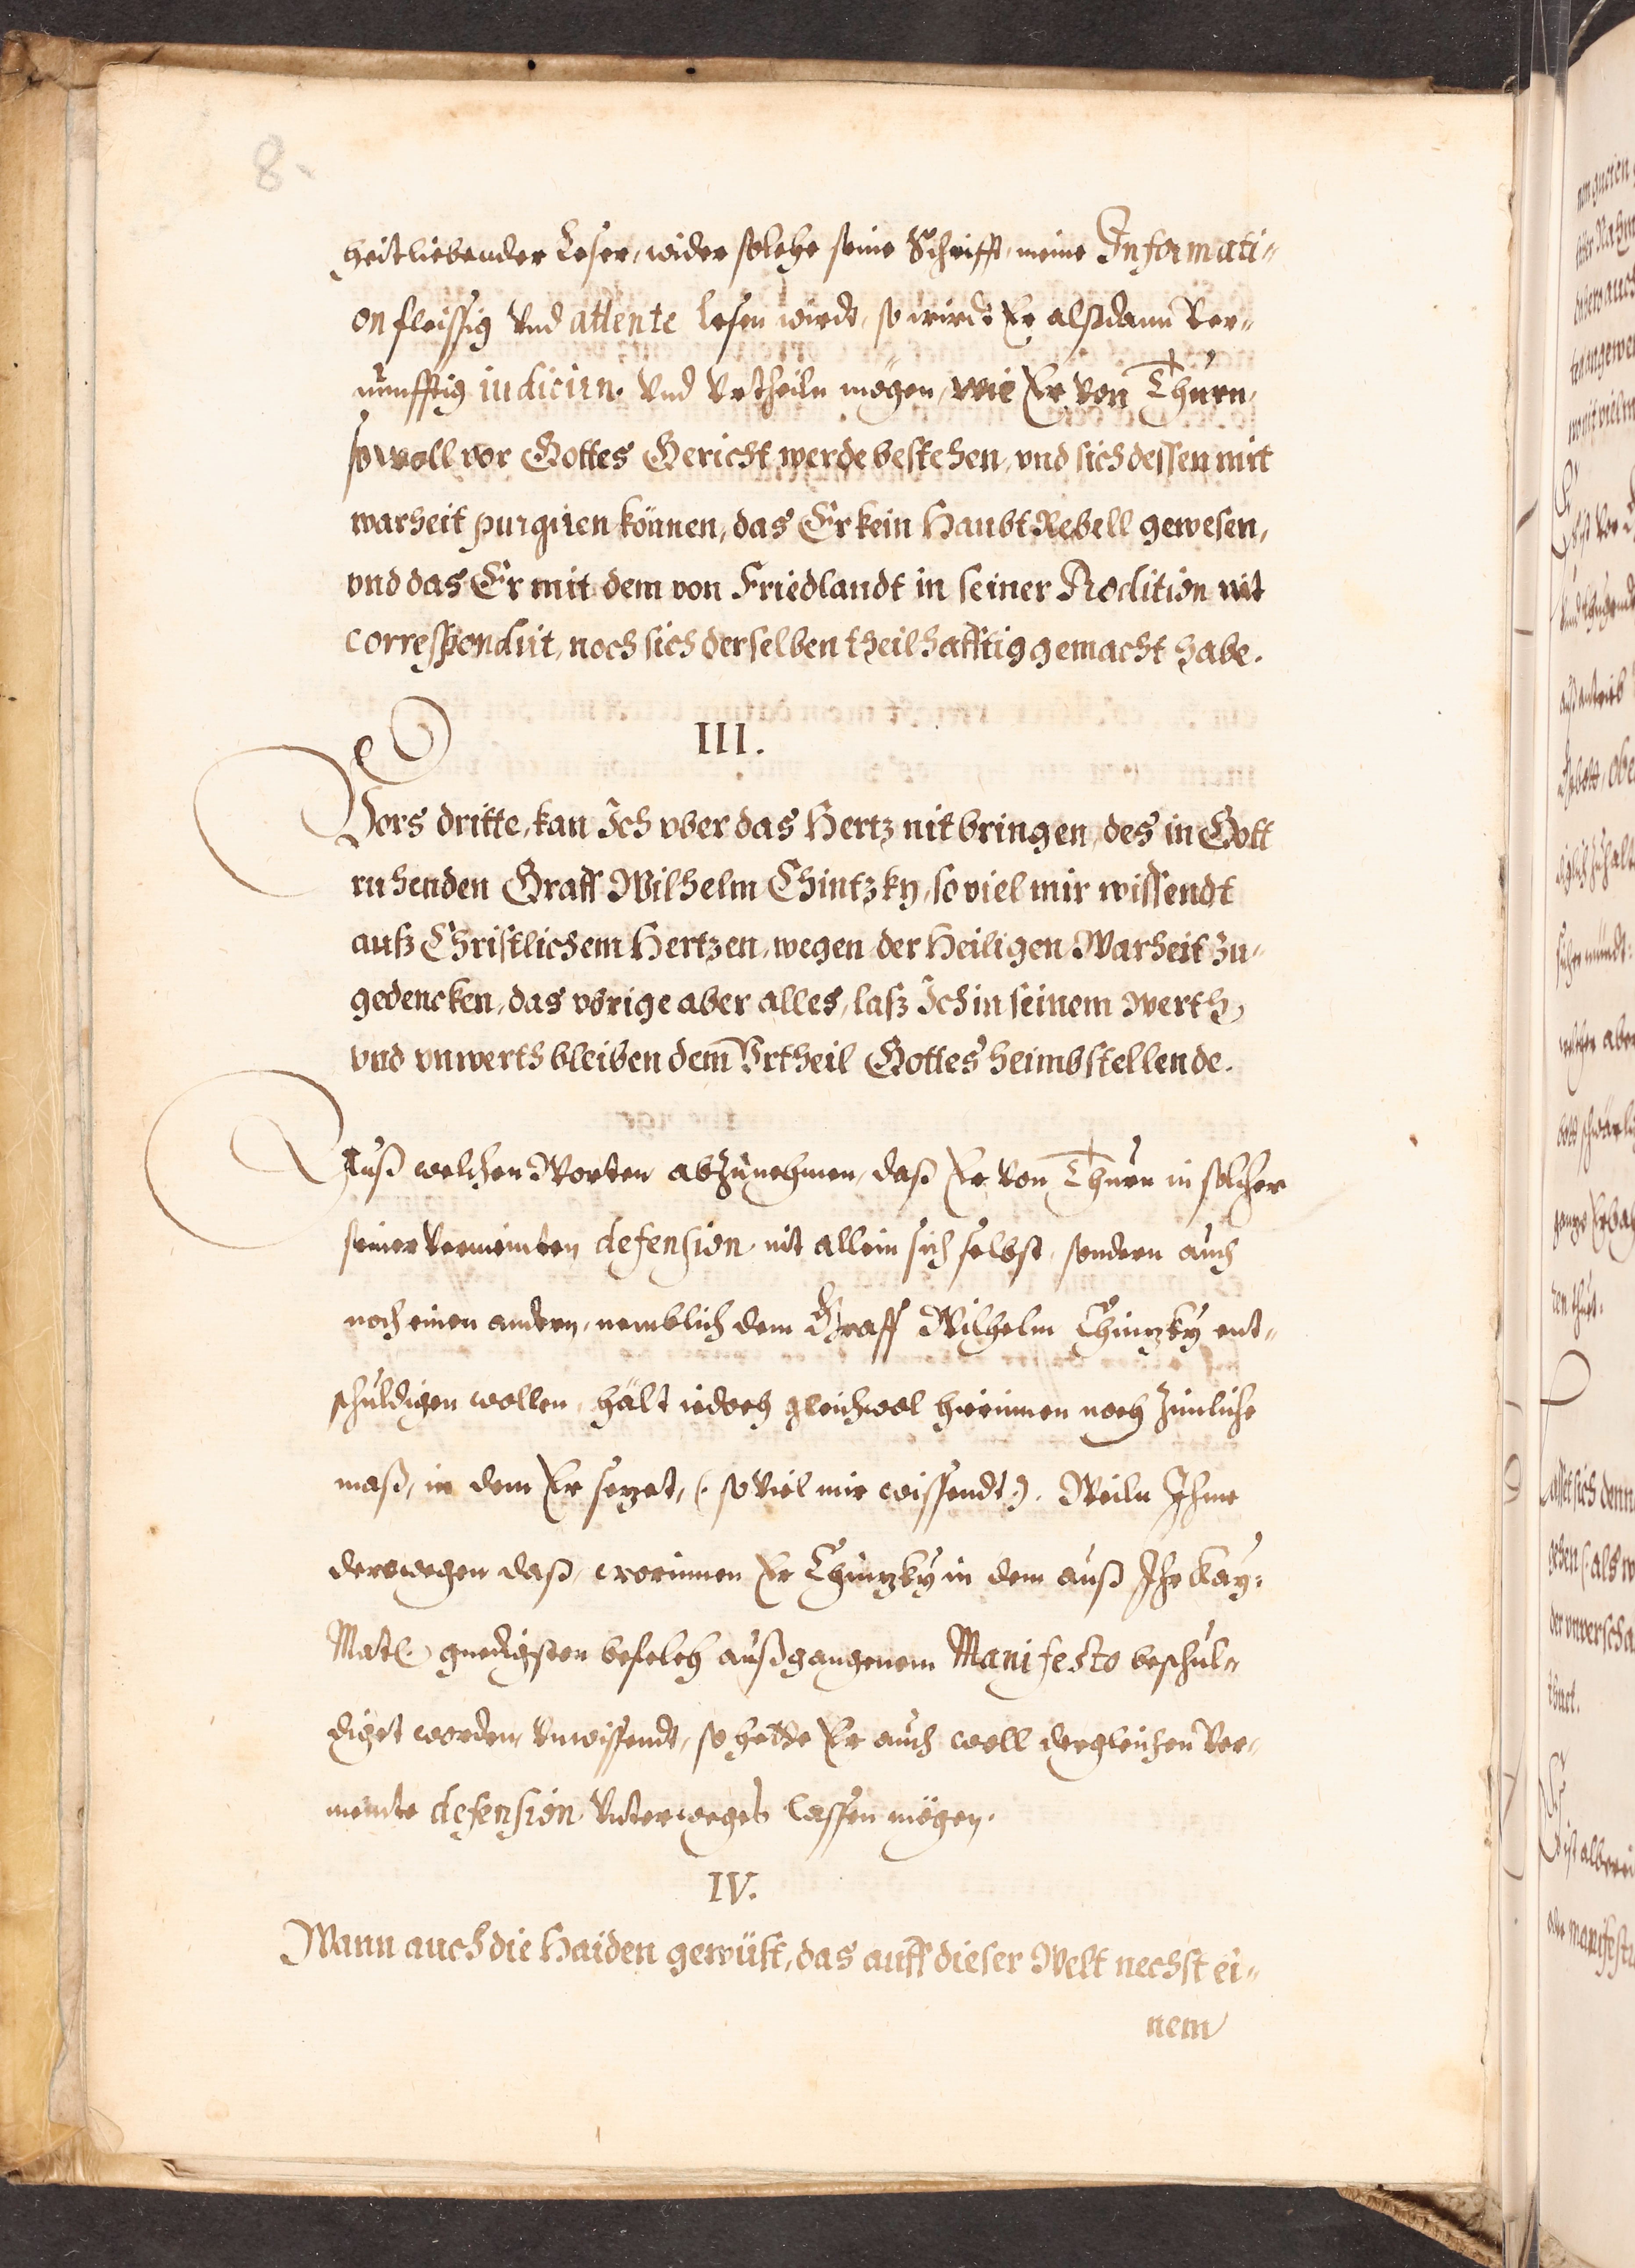 8.
heit liebender Leser, wider solche seine Schrifft, meine Informati-
on fleissig vnd attente lesen wirdt, so wirdt Er alßdann Ver-
nunfftig iudicirn. vnd Vrtheiln mögen, wie Er von Thurn,
so woll vor Gottes Gericht werde bestehen, vnd sich dessen mit
warheit purgiren können, das Er kein Haubt Rebell gewesen,
vnd das Er mit dem von Friedlandt in seiner Prodition nit
correspondirt, noch sich derselben theilhafftig gemacht habe.
III.
Vors dritte, kan Ich vber das Hertz nit bringen, des in Gott
ruhenden Graff Wilhelm Chintzky, so viel mir wissendt
auß Christlichem Hertzen, wegen der Heiligen Warheit zu-
gedencken, das vorige aber alles, laß Ich in seinem Werth
vnd vnwerth bleiben dem Vrtheil Gottes heimbstellende.
Auß welchen Worten abzunehmen, daß Er von Thurn in solcher
seiner vermeinten defension, nit allein sich selbst, sondern auch
noch einen andern, nemblich dem Graff Wilhelm Chintzky ent-
schuldigen wollen, hält iedoch gleichwol hierinnen noch zimliche
maß, in dem Er setzet, (: so viel mir wissendt :). Weiln Ihme
derowegen daß, worinnen Er Chintzky in dem auß Ihr Kay:
Matt. gnedigsten befelch außgangenem Manifesto beschul-
diget worden, vnwissendt, so hette Er auch woll dergleichen Ver-
meinte defension vnterweges lassen mögen.
IV.
Wann auch die Haiden gewüst, das auff dieser Welt nechst ei-
nem